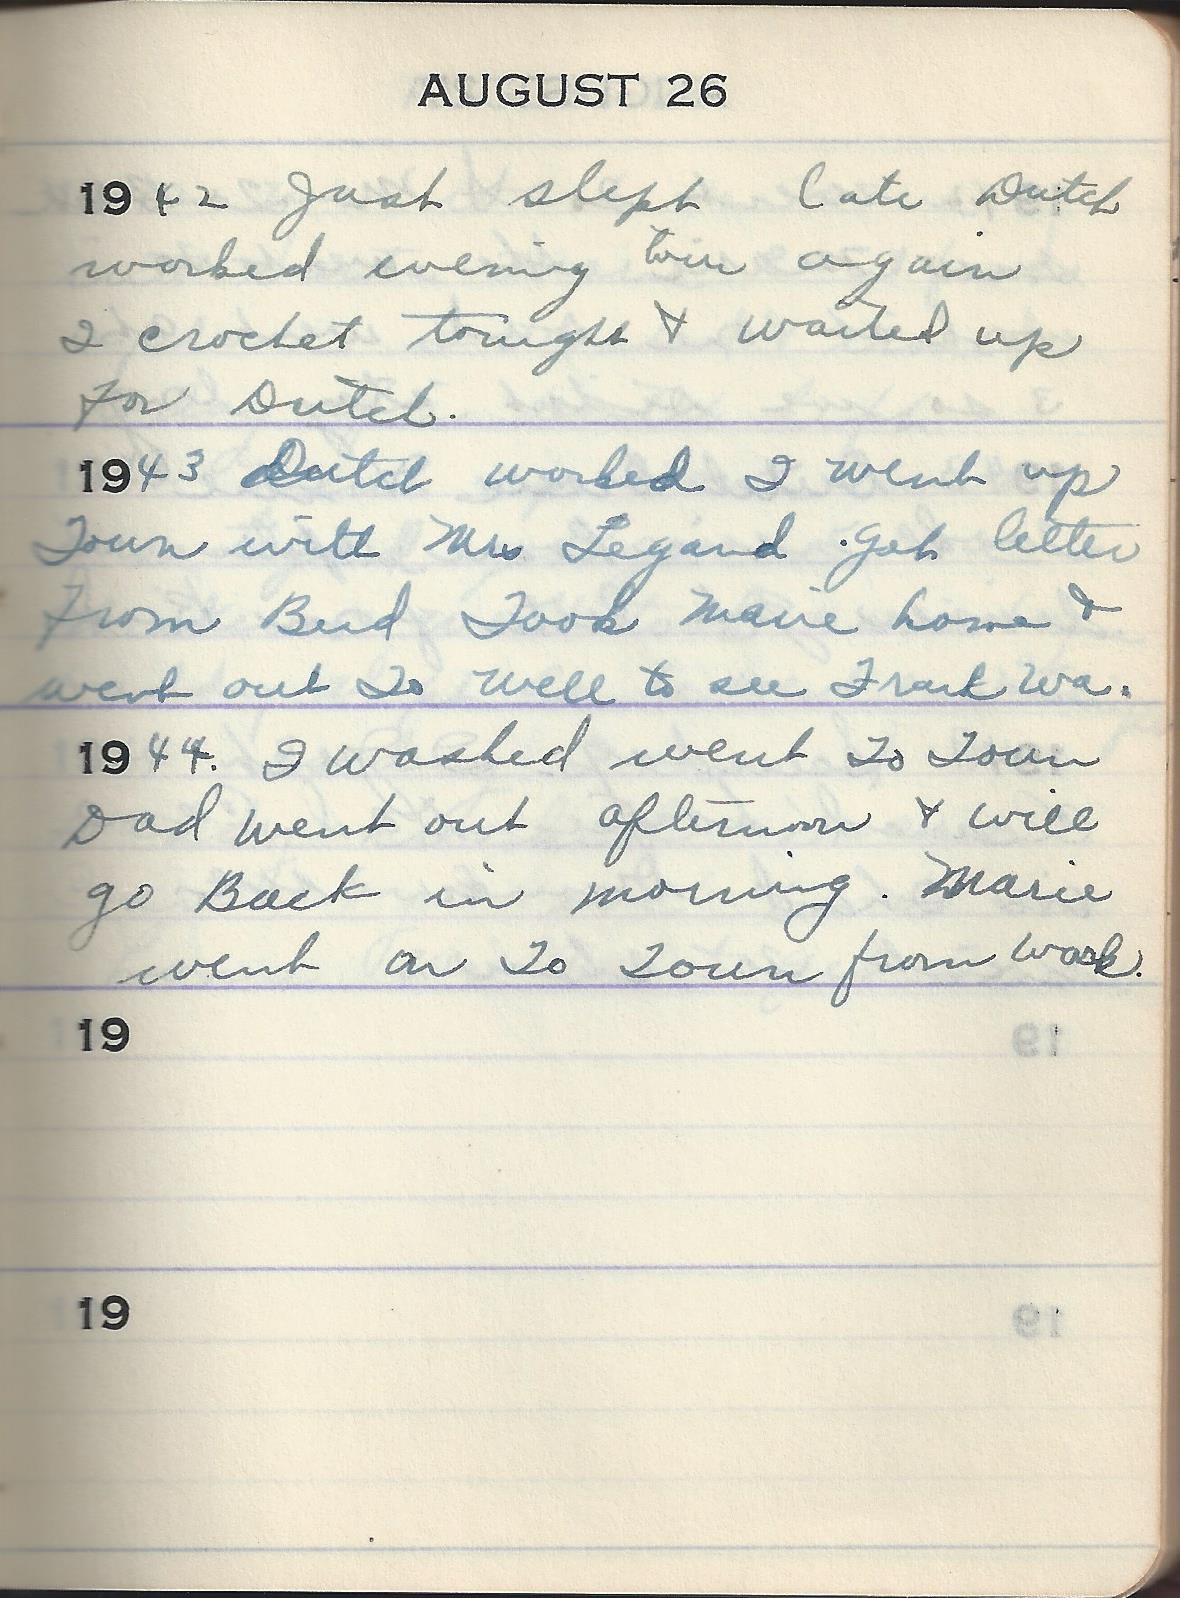 AUGUST 26
1942 Just slept late Dutch
worked evening tour again
I crochet tonight & waited up
for Dutch.
1943 Dutch worked I went up
Town with Mrs Legand . got letter
From Bud Took Marie home &
went out To well to see Frank Wa.
1944. I washed went To Town
Dad went out afternoon & will
go Back in morning. Marie
went on To Town from work.
19
19